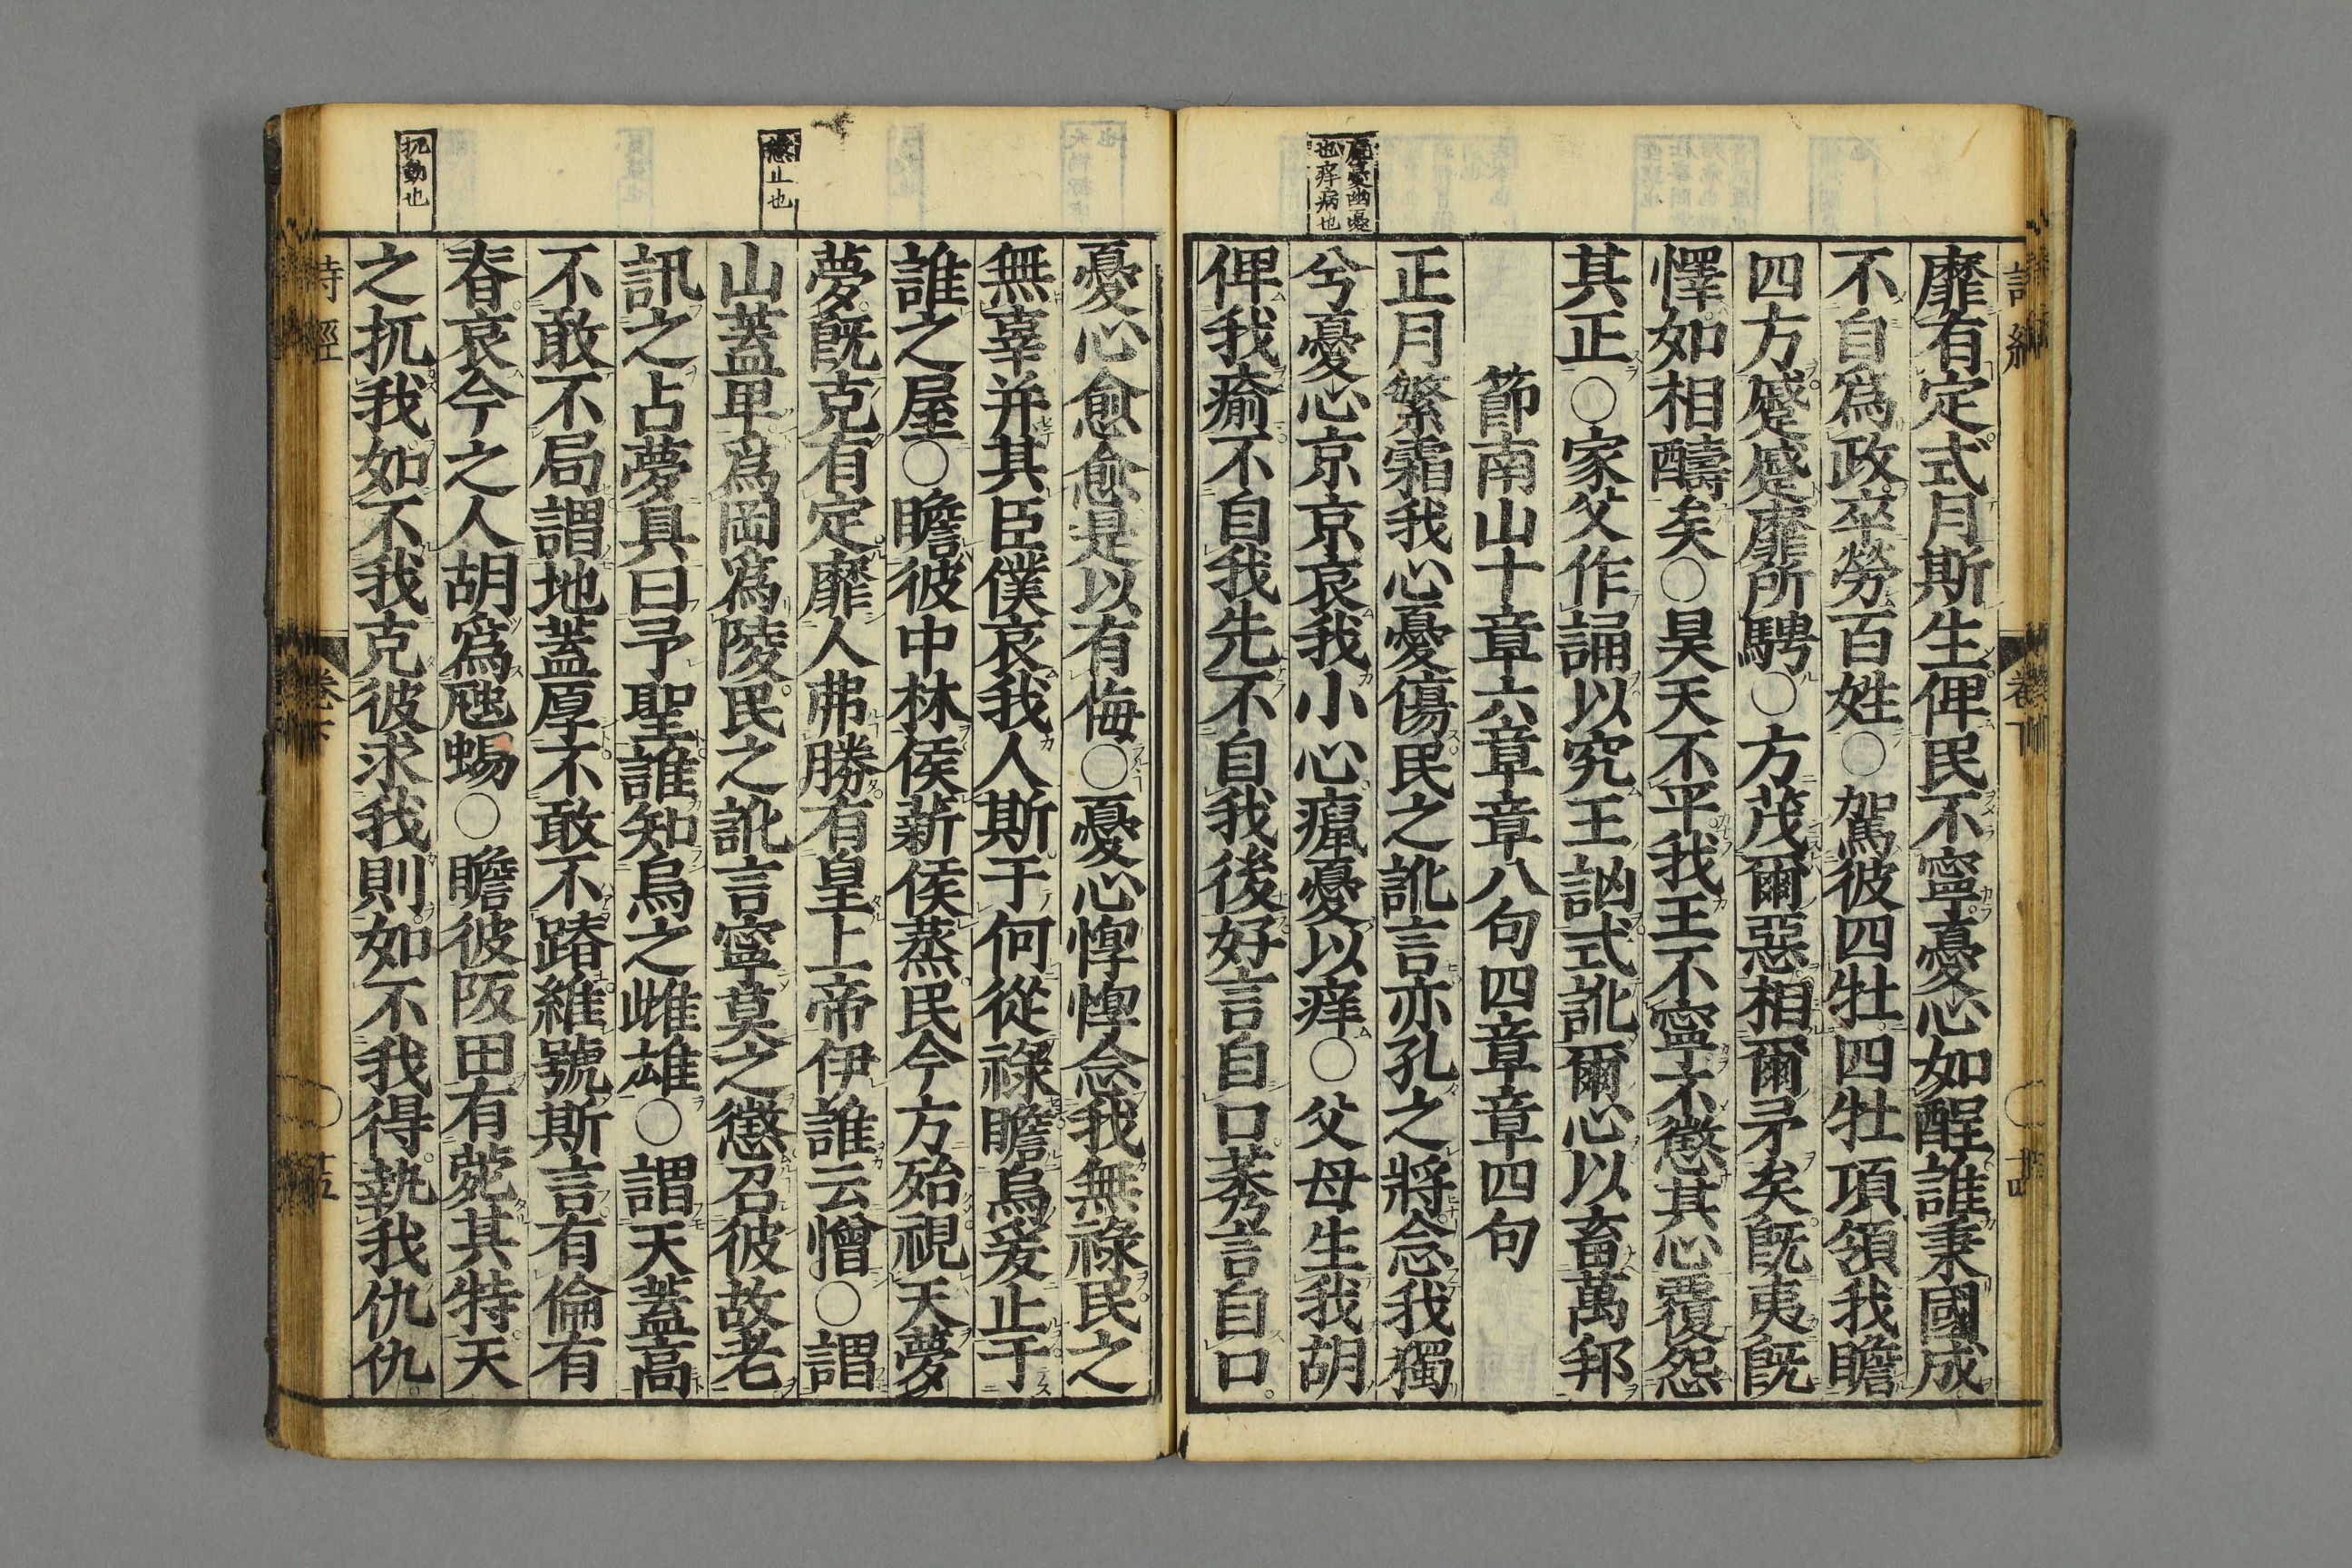 靡有定式月斯生俾民不寧憂心如酲誰秉國成
不自爲政卒勞百姓○駕彼四牡四牡項領我瞻
四方蹙蹙靡所騁○方茂爾惡相爾矛矣旣夷旣
懌如相醻矣○昊天不平我王不寧不懲其心覆怨
其正○家父作誦以究王訩式訛爾心以畜萬邦
節南山十章六章章八句四章章四句
正月繁霜我心憂傷民之訛言亦孔之將念我獨
兮憂心京京哀我小心瘋憂以痒○父母生我胡
俾我瘉不自我先不自我後好言自口莠言自口
也痒病也
憂心愈愈是以有侮○憂心惸惸念我無祿民之
無辜并其臣僕哀我人斯于何從祿瞻烏爰止于
誰之屋○瞻彼中林侯薪侯蒸民今方殆視天夢
夢旣克有定靡人弗勝有皇上帝伊誰云憎○謂
山蓋卑爲岡爲陵民之訛言寧莫之懲召彼故老
訊之占夢具曰予聖誰知烏之雌雄○謂天蓋高
不敢不局謂地蓋厚不敢不蹐維號斯言有倫有
脊哀今之人胡爲虺蜴○瞻彼阪田有菀其特天
之扤我如不我克彼求我則如不我得執我仇仇
懲止也
扤動也
詩經
卷下
十五